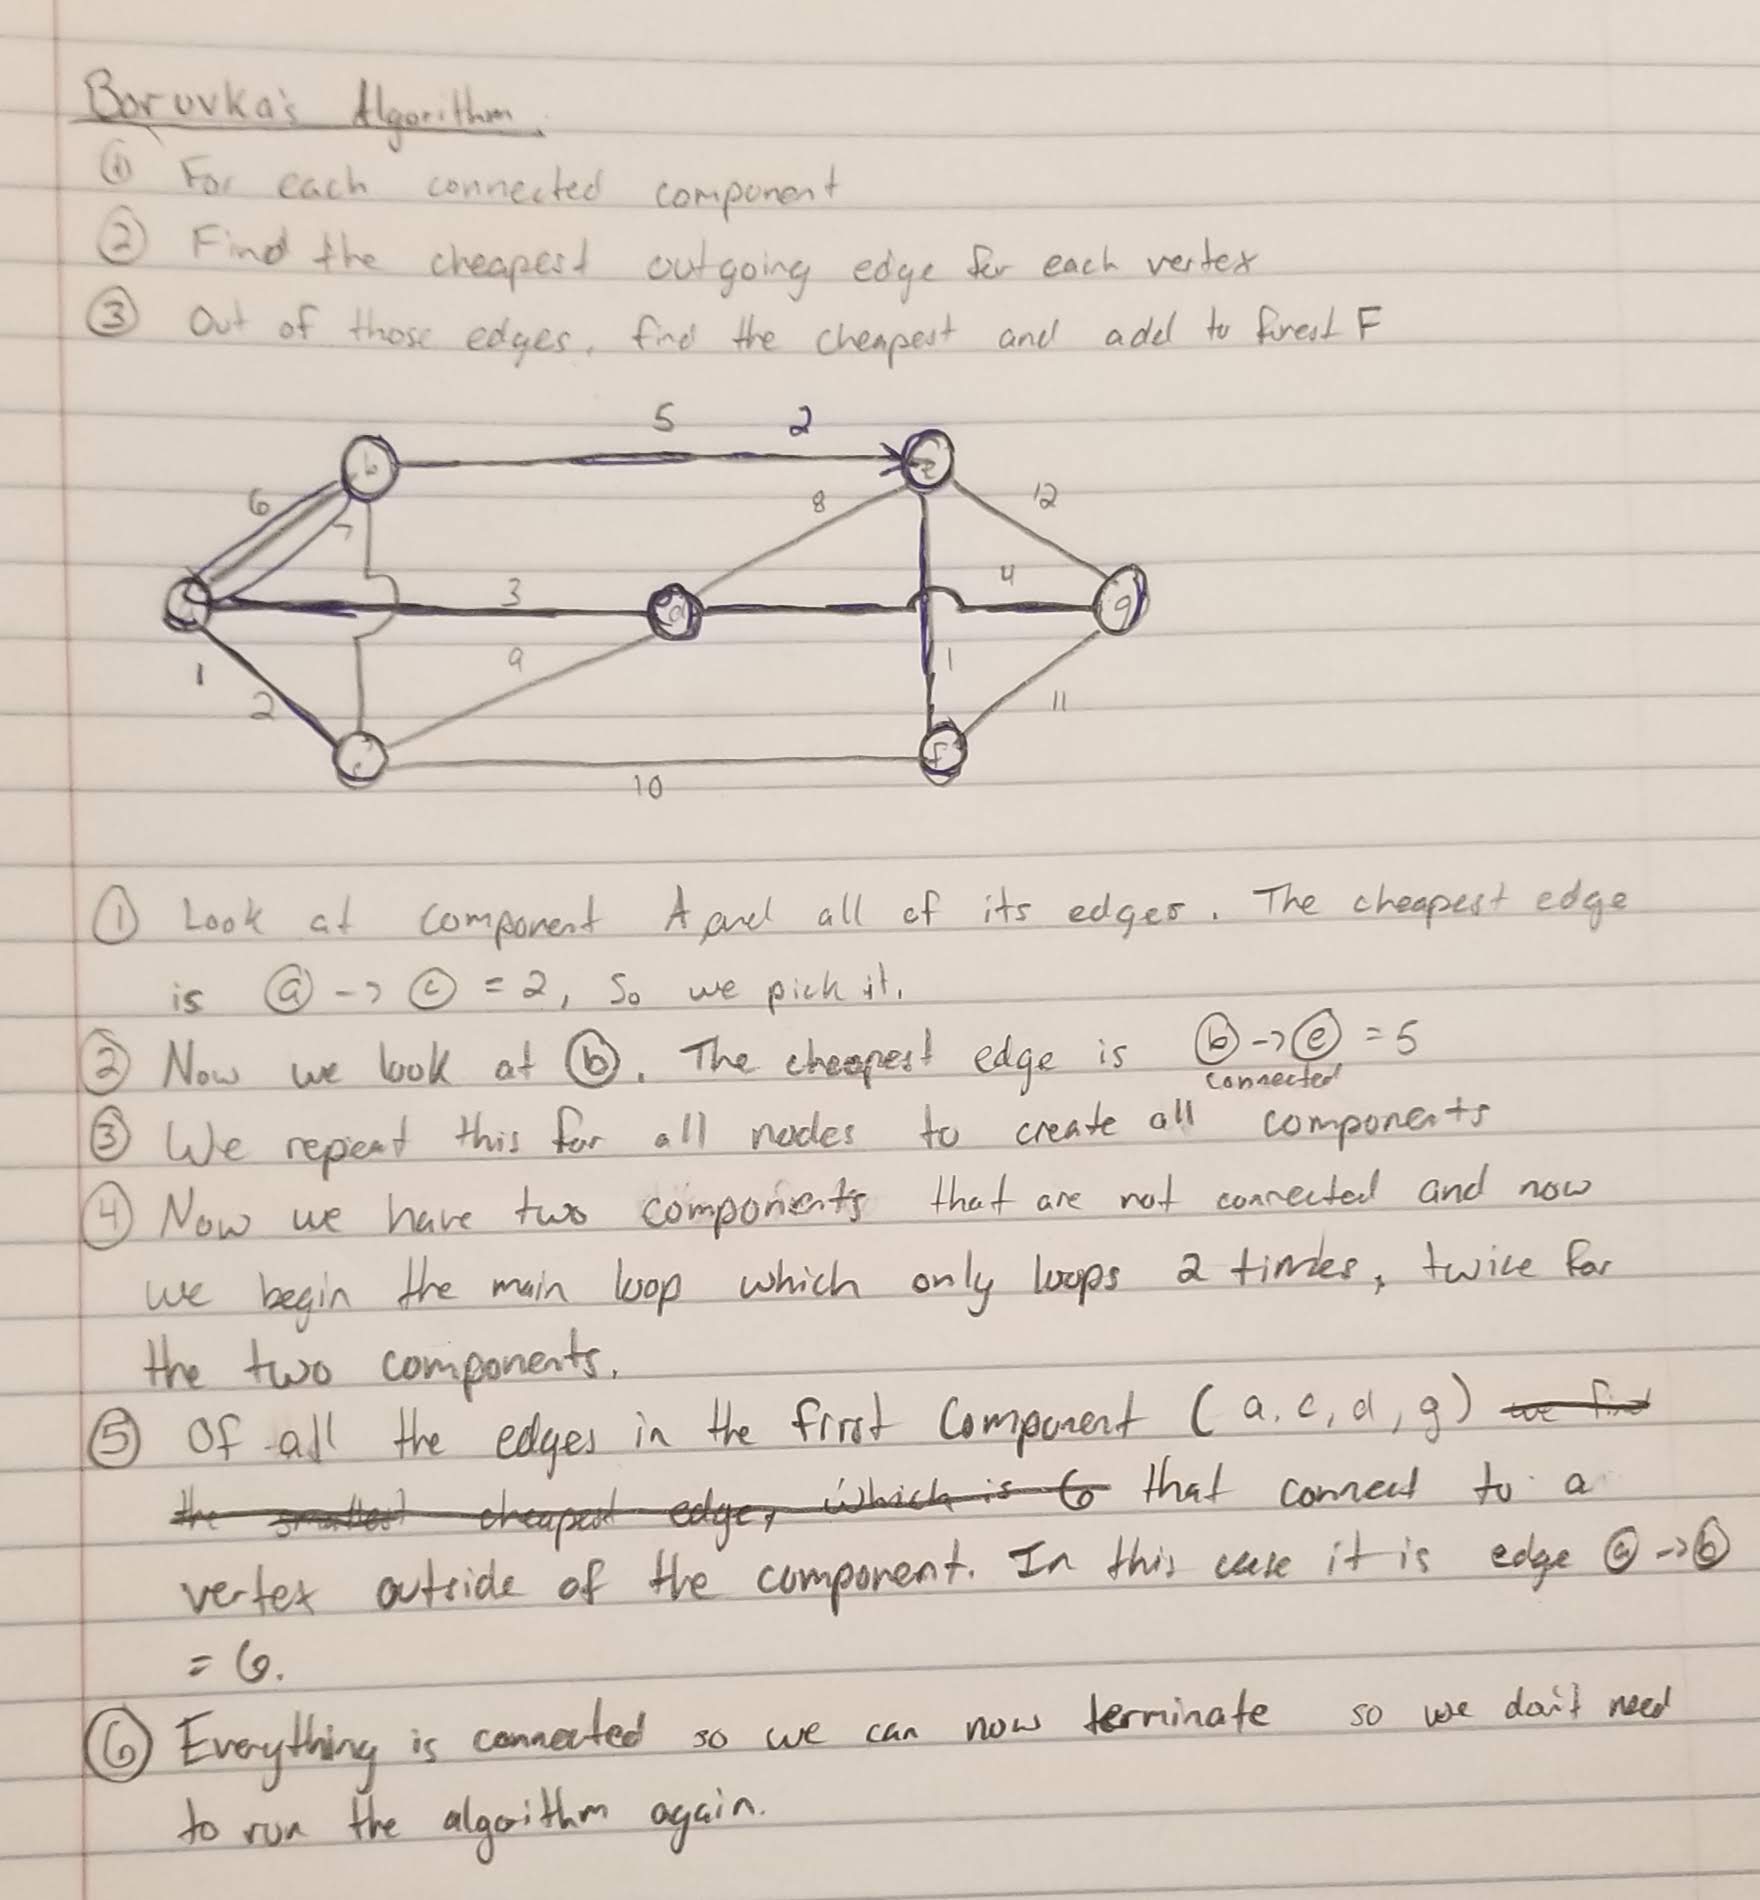 Boruvka's Algorithm
① For each connected component
② Find the cheapest outgoing edge for each vertex
③ Out of those edges, find the cheapest and add to forest F
5 2
b e
6 7 8 12
3 4
a d g
9 1
1 2 11
c f
10
① Look at component A and all of its edges. The cheapest edge
is ⓐ -> ⓒ = 2, So we pick it.
② Now we look at ⓑ. The cheapest edge is ⓑ -> ⓔ = 5
connected
③ We repeat this for all nodes to create all components
④ Now we have two components that are not connected and now
we begin the main loop which only loops 2 times, twice for
the two components.
⑤ Of all the edges in the first Component (a, c, d, g) we find
the smallest cheapest edge, which is 6 that connect to a
vertex outside of the component. In this case it is edge ⓐ -> ⓑ
= 6.
⑥ Everything is connected so we can now terminate so we don't need
to run the algorithm again.